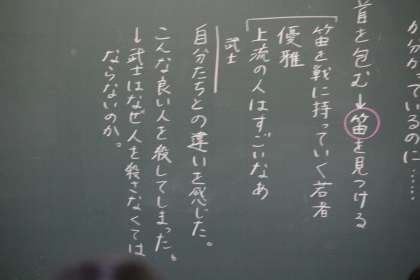 ているのに……
首を包む→笛を見つける
笛を戦に持っていく若者
優雅
上流の人はすごいなあ
武士
自分たちとの違いを感じた。
こんな良い人を殺してしまった。
→武士はなぜ人を殺さなくては
ならないのか。